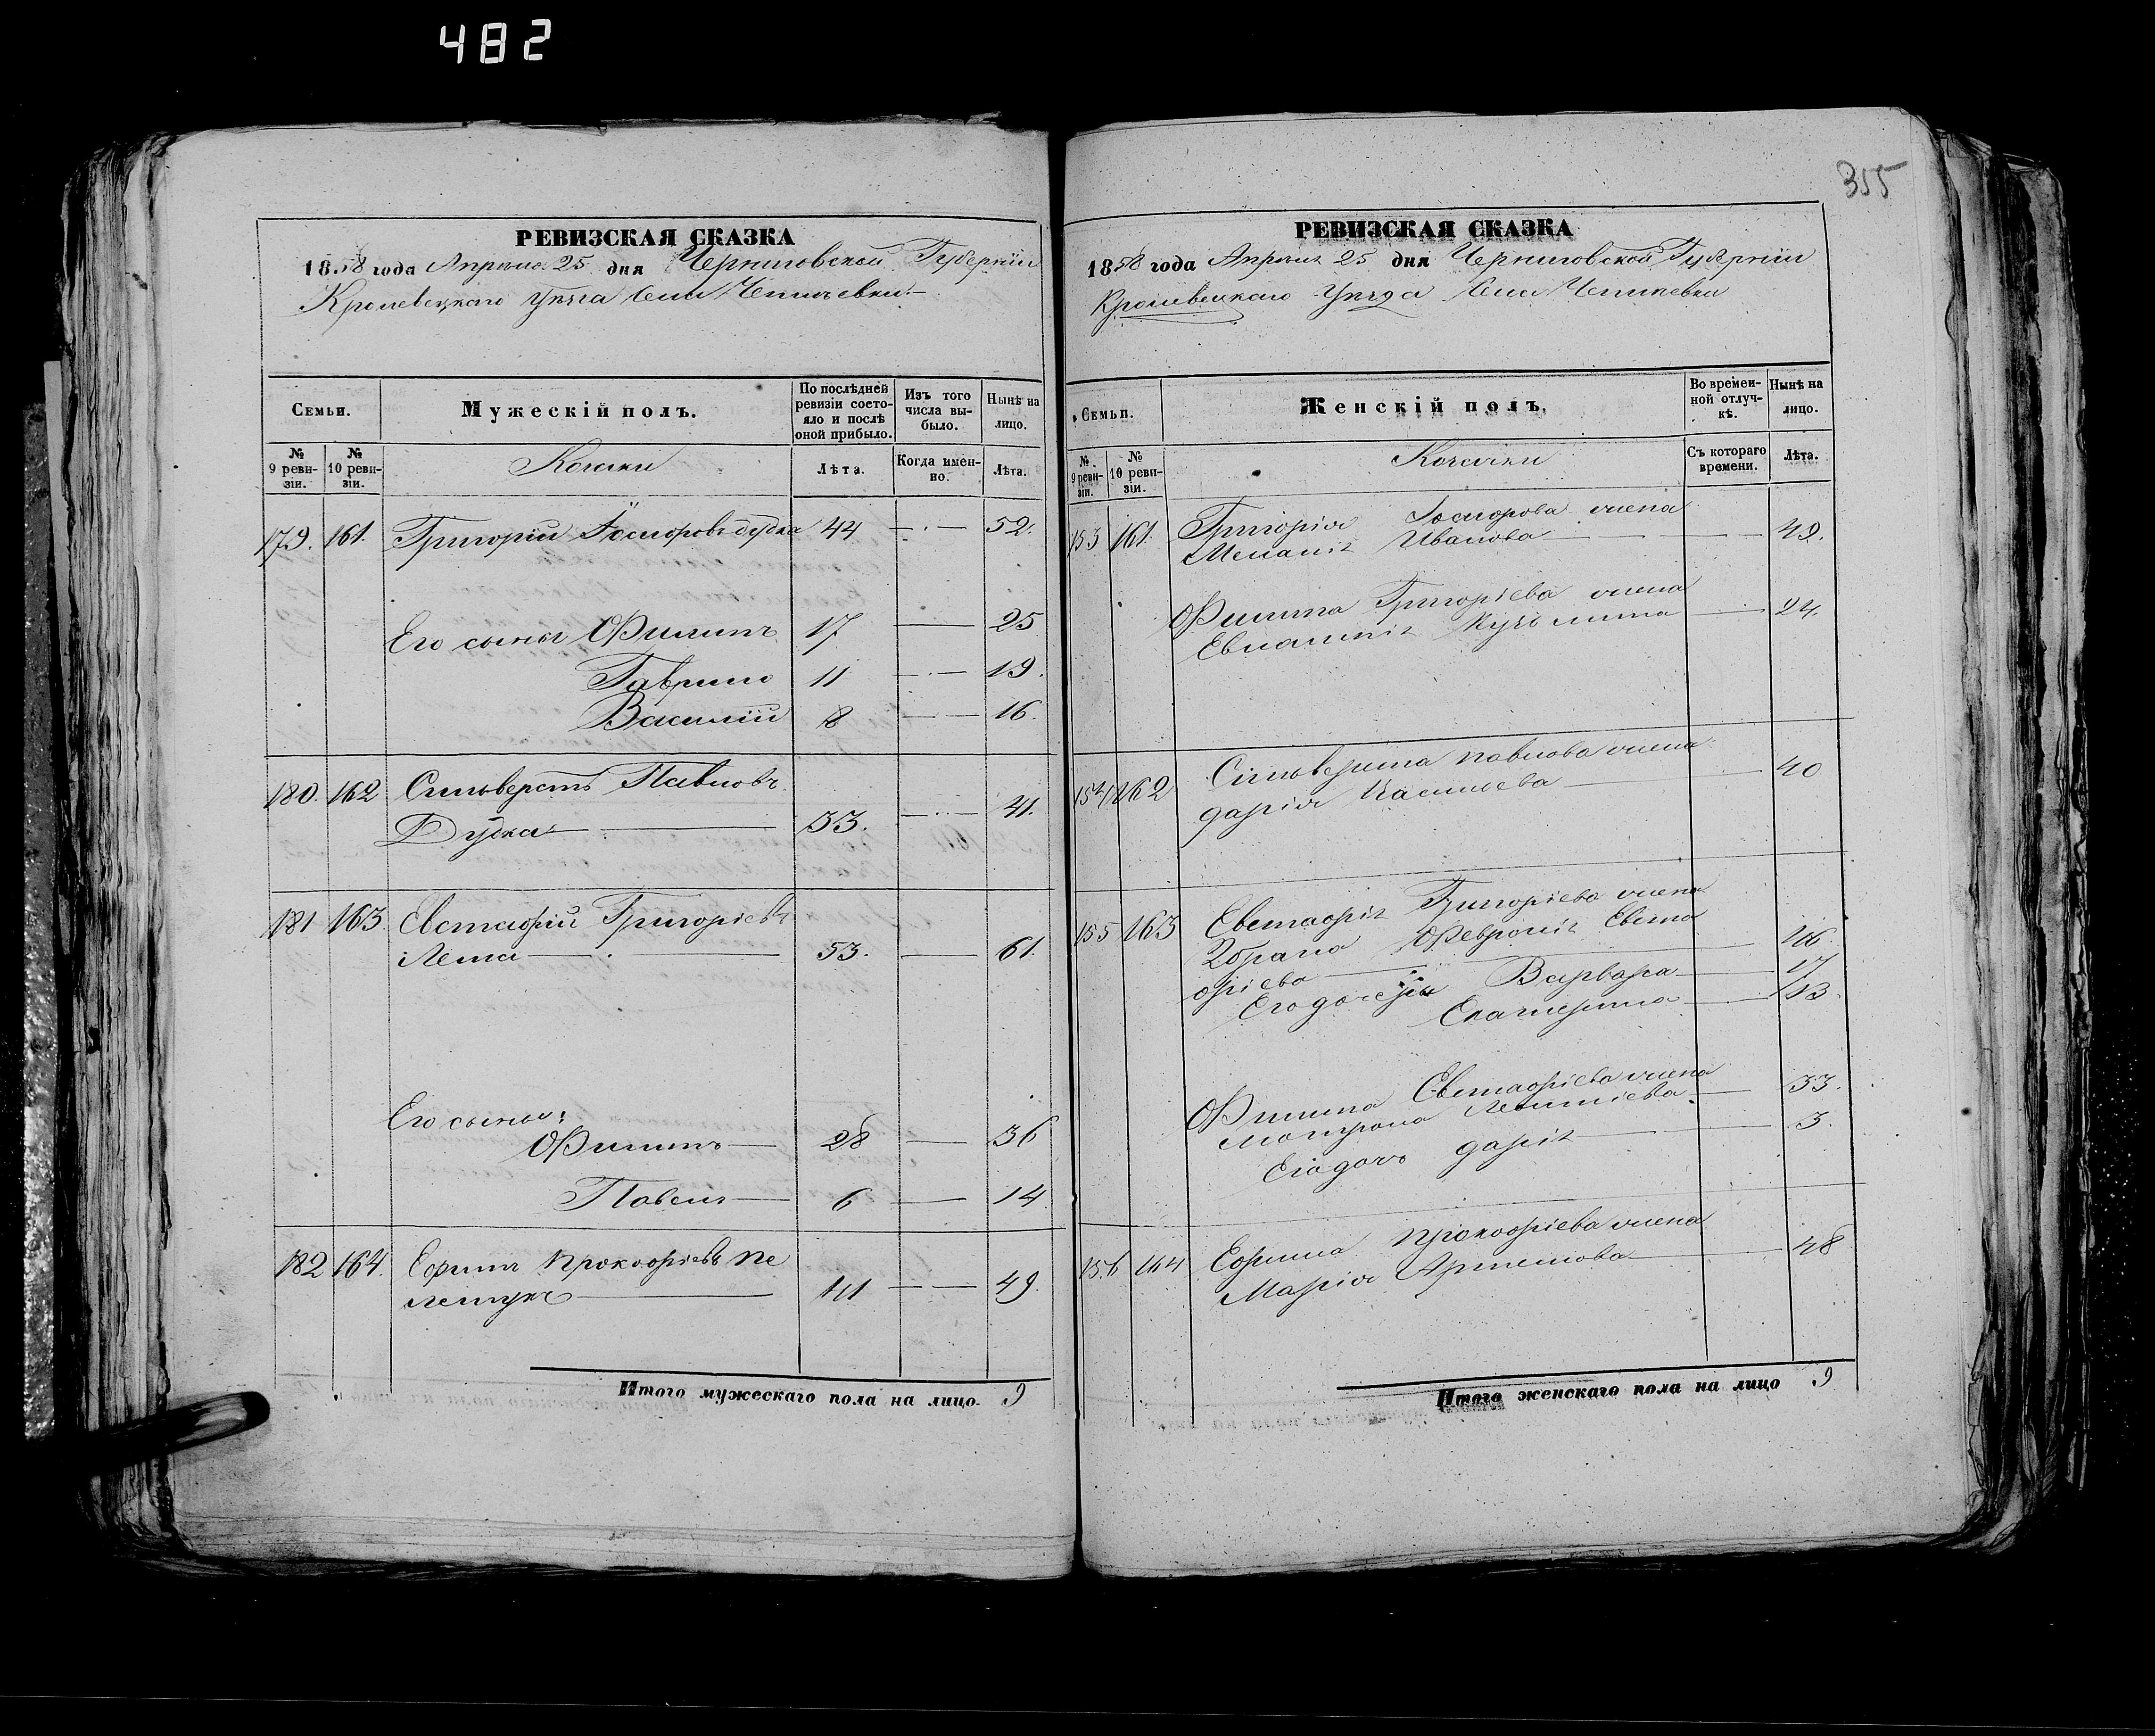 482
355
РЕВИЗСКАЯ СКАЗКА
1858 года Апреля 25 дня Черниговской Губерніи
Кролевецкаго Уезда Села
Семьи.
Мужескій полъ.
По послѣдней ревизіи состояло и послѣ оной прибыло.
Изъ того числа выбыло.
Нынѣ на лицо.
№ 9 ревизіи.
№ 10 ревизіи.
Козаки
Лѣта.
Когда именно.
Лѣта.
179. 161. Григорій Дудка 44 52.
Его сыны Филипъ 17 25
Гаврило 11 19.
Василій 8 16.
180. 162 Сильверстъ Павловъ
Дудка 33. 41.
181 163 Евстафій Григоріевъ
Лета 53. 61.
Его сыны:
Филипъ 28 36
Павелъ 6 14
182 164. Ефимъ Прокофіевъ Пе
41 49.
Итого мужескаго пола на лицо. 9
РЕВИЗСКАЯ СКАЗКА
1858 года Апреля 25 дня Черниговской Губерніи
Кролевецкаго Уезда Села
Семьи.
Женскій полъ.
Во временной отлучкѣ.
Нынѣ на лицо.
№ 9 ревизіи.
№ 10 ревизіи.
Козачки
Съ котораго времени.
Лѣта.
153 161. Григорія жена
Меланія Иванова 49.
Филипа Григоріева жена
Евлампія Кузьмина 24.
154 162 Сильверста Павлова жена
Дарія 40
155 163 Евстафія Григоріева жена
Февронія Евста
фіева 46.
Его дочери Варвара 17
Екатерина 13.
Филипа Евстафіева жена
Матрона 33.
Его дочь Дарія 3.
156 164 Ефима Прокофіева жена
Марія Артемова 48
Итого женскаго пола на лицо 9